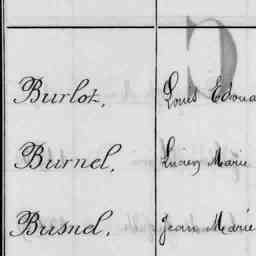 Burlot, Louis Edoua
Burnel, Lucien Marie
Busnel, Jean Marie